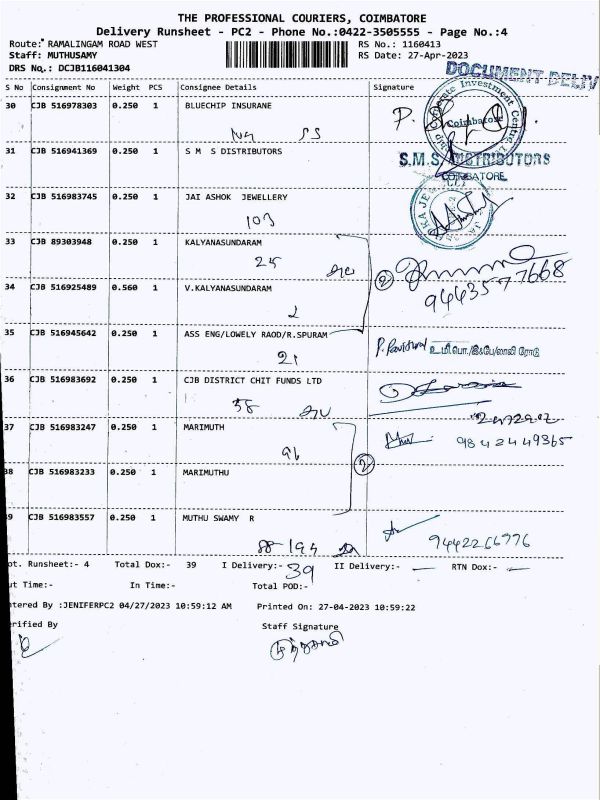 THE PROFESSIONAL COURIERS, COIMBATORE
Delivery Runsheet - PC2 - Phone No.:0422-3505555 - Page No.:4
Route: RAMALINGAM ROAD WEST
RS No.: 1160413
Staff: MUTHUSAMY
RS Date: 27-Apr-2023
DRS No.: DCJB116041304
DOCUMENT DELIV
S No Consignment No Weight PCS Consignee Details Signature
30 CJB 516978303 0.250 1 BLUECHIP INSURANE
Corporate Investment Centre
Coimbatore
31 CJB 516941369 0.250 1 S M S DISTRIBUTORS
S.M.S. DISTRIBUTORS
COIMBATORE
32 CJB 516983745 0.250 1 JAI ASHOK JEWELLERY
103
33 CJB 89303948 0.250 1 KALYANASUNDARAM
25
2
9443577668
34 CJB 516925489 0.560 1 V.KALYANASUNDARAM
2
35 CJB 516945642 0.250 1 ASS ENG/LOWELY RAOD/R.SPURAM
21
36 CJB 516983692 0.250 1 CJB DISTRICT CHIT FUNDS LTD
58
37 CJB 516983247 0.250 1 MARIMUTH
9842449365
96
2
38 CJB 516983233 0.250 1 MARIMUTHU
39 CJB 516983557 0.250 1 MUTHU SWAMY R
9442266776
ot. Runsheet:- 4 Total Dox:- 39 I Delivery:- 39 II Delivery:- — RTN Dox:- —
ut Time:- In Time:- Total POD:-
ntered By :JENIFERPC2 04/27/2023 10:59:12 AM Printed On: 27-04-2023 10:59:22
erified By Staff Signature